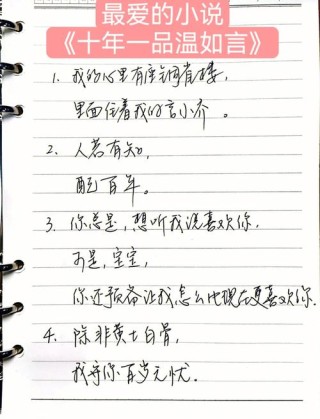 最爱的小说
《十年一品温如言》
1. 我的心里有座铜雀楼,
里面住着我的言小乔。
2. 人若有知,
配百年。
3. 你总是,想听我说喜欢你,
可是,宝宝,
你还预备让我怎么比现在更喜欢你.
4. 除非黄土白骨,
我守你百岁无忧.